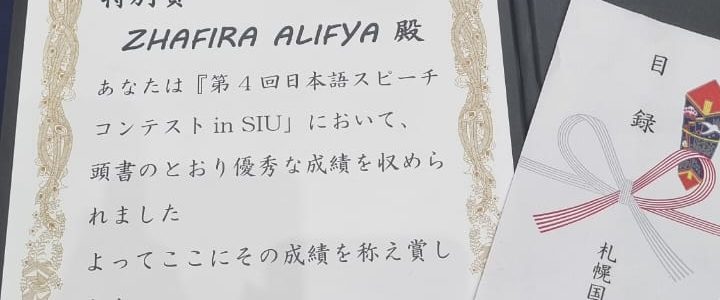 特別賞
ZHAFIRA ALIFYA 殿
あなたは『第4回日本語スピーチ
コンテスト in SIU」において、
頭書のとおり優秀な成績を収めら
れました
よってここにその成績を称え賞し
目録
札幌国